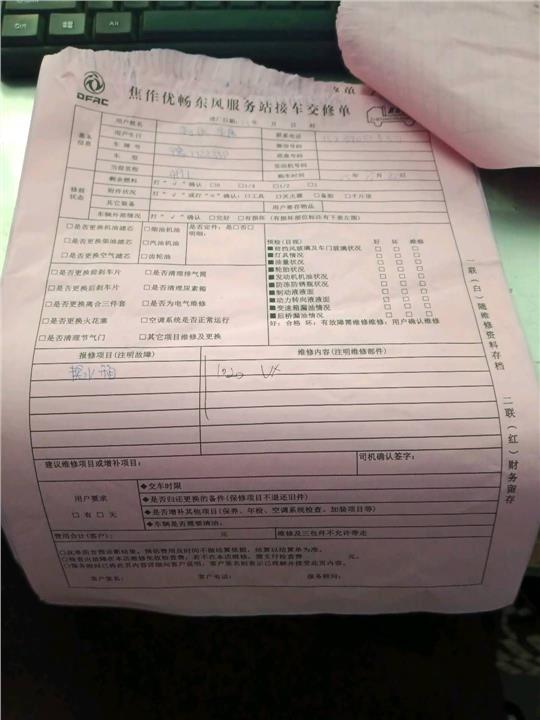 DFAC
焦作优畅东风服务站接车交修单
进厂日期: 年 月 日 时
基本信息
用户姓名
联系电话
用户生日
身份号码
车牌号
底盘号码
车型
发动机号码
当前里程
购车时间 年 月 日
修前状态
剩余燃料 打"√"确认 □0 □1/4 □1/2 □1
附件状况 打"√"或打"×"确认:□工具 □灭火器 □备胎 □千斤顶
其它装备 用户寄存物品
车辆外部情况 打"√"确认 □完好 □有损坏(有损坏部位标注有下表左图)
□是否更换机油滤芯 □柴油机油 是否定件:是□否□
□是否更换柴油滤芯 □汽油机油 明细:
□是否更换空气滤芯 □齿轮油
预检(目视) 好 坏 维修
■前挡风玻璃及车门玻璃状况
■灯具情况
■油量状况
■轮胎状况
■发动机机油状况
■防冻防锈瓶状况
■制动液液面
■动力转向液液面
■变速箱漏油情况
■后桥漏油情况
□是否更换前刹车片 □是否清理排气筒
□是否更换后刹车片 □是否清理尿素箱
□是否更换离合三件套 □是否为电气维修
□是否更换火花塞 □空调系统是否正常运行
□是否清理节气门 □其它项目维修及更换
好:合格 坏:有故障需维修维修:用户确认维修
报修项目(注明故障) 维修内容(注明维修部件)
建议维修项目或增补项目: 司机确认签字:
用户要求
□有 □无
◆交车时限
◆是否归还更换的备件(保修项目不退还旧件)
◆是否增补其他项目(保养、年检、空调系统检查、加装项目等)
◆车辆是否需要清洁:
费用合计(客户): 元 维修及三包件不允许带走
○此单前台预诊断结果,预估费用及时间不做结算依据,结算以结算单为准。
○检查出故障在本店维修免收检查费,若不在本店维修,需支付检查费 元。
○服务顾问已将此页内容详细向客户说明,客户签名则表示已理解并接受此页内容。
客户签名: 客户电话: 服务顾问:
一联(白)随维修资料存档
二联(红)财务留存